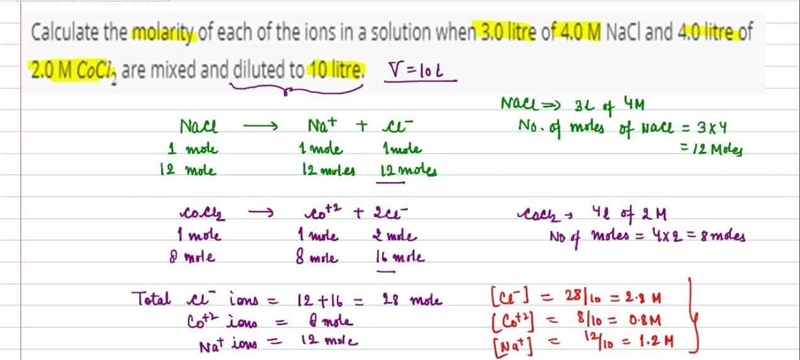 Calculate the molarity of each of the ions in a solution when 3.0 litre of 4.0 M NaCl and 4.0 litre of
2.0 M CoCl₂ are mixed and diluted to 10 litre. V = 10 L
NaCl ⟶ Na⁺ + Cl⁻
1 mole 1 mole 1 mole
12 mole 12 moles 12 moles
NaCl ⇒ 3L of 4M
No. of moles of NaCl = 3×4
= 12 Moles
CoCl₂ → Co⁺² + 2Cl⁻
1 mole 1 mole 2 mole
8 mole 8 mole 16 mole
CoCl₂ → 4l of 2M
No of moles = 4×2 = 8 moles
Total Cl⁻ ions = 12+16 = 28 mole
Co⁺² ions = 8 mole
Na⁺ ions = 12 mole
[Cl⁻] = 28/10 = 2.8 M
[Co⁺²] = 8/10 = 0.8M
[Na⁺] = 12/10 = 1.2 M